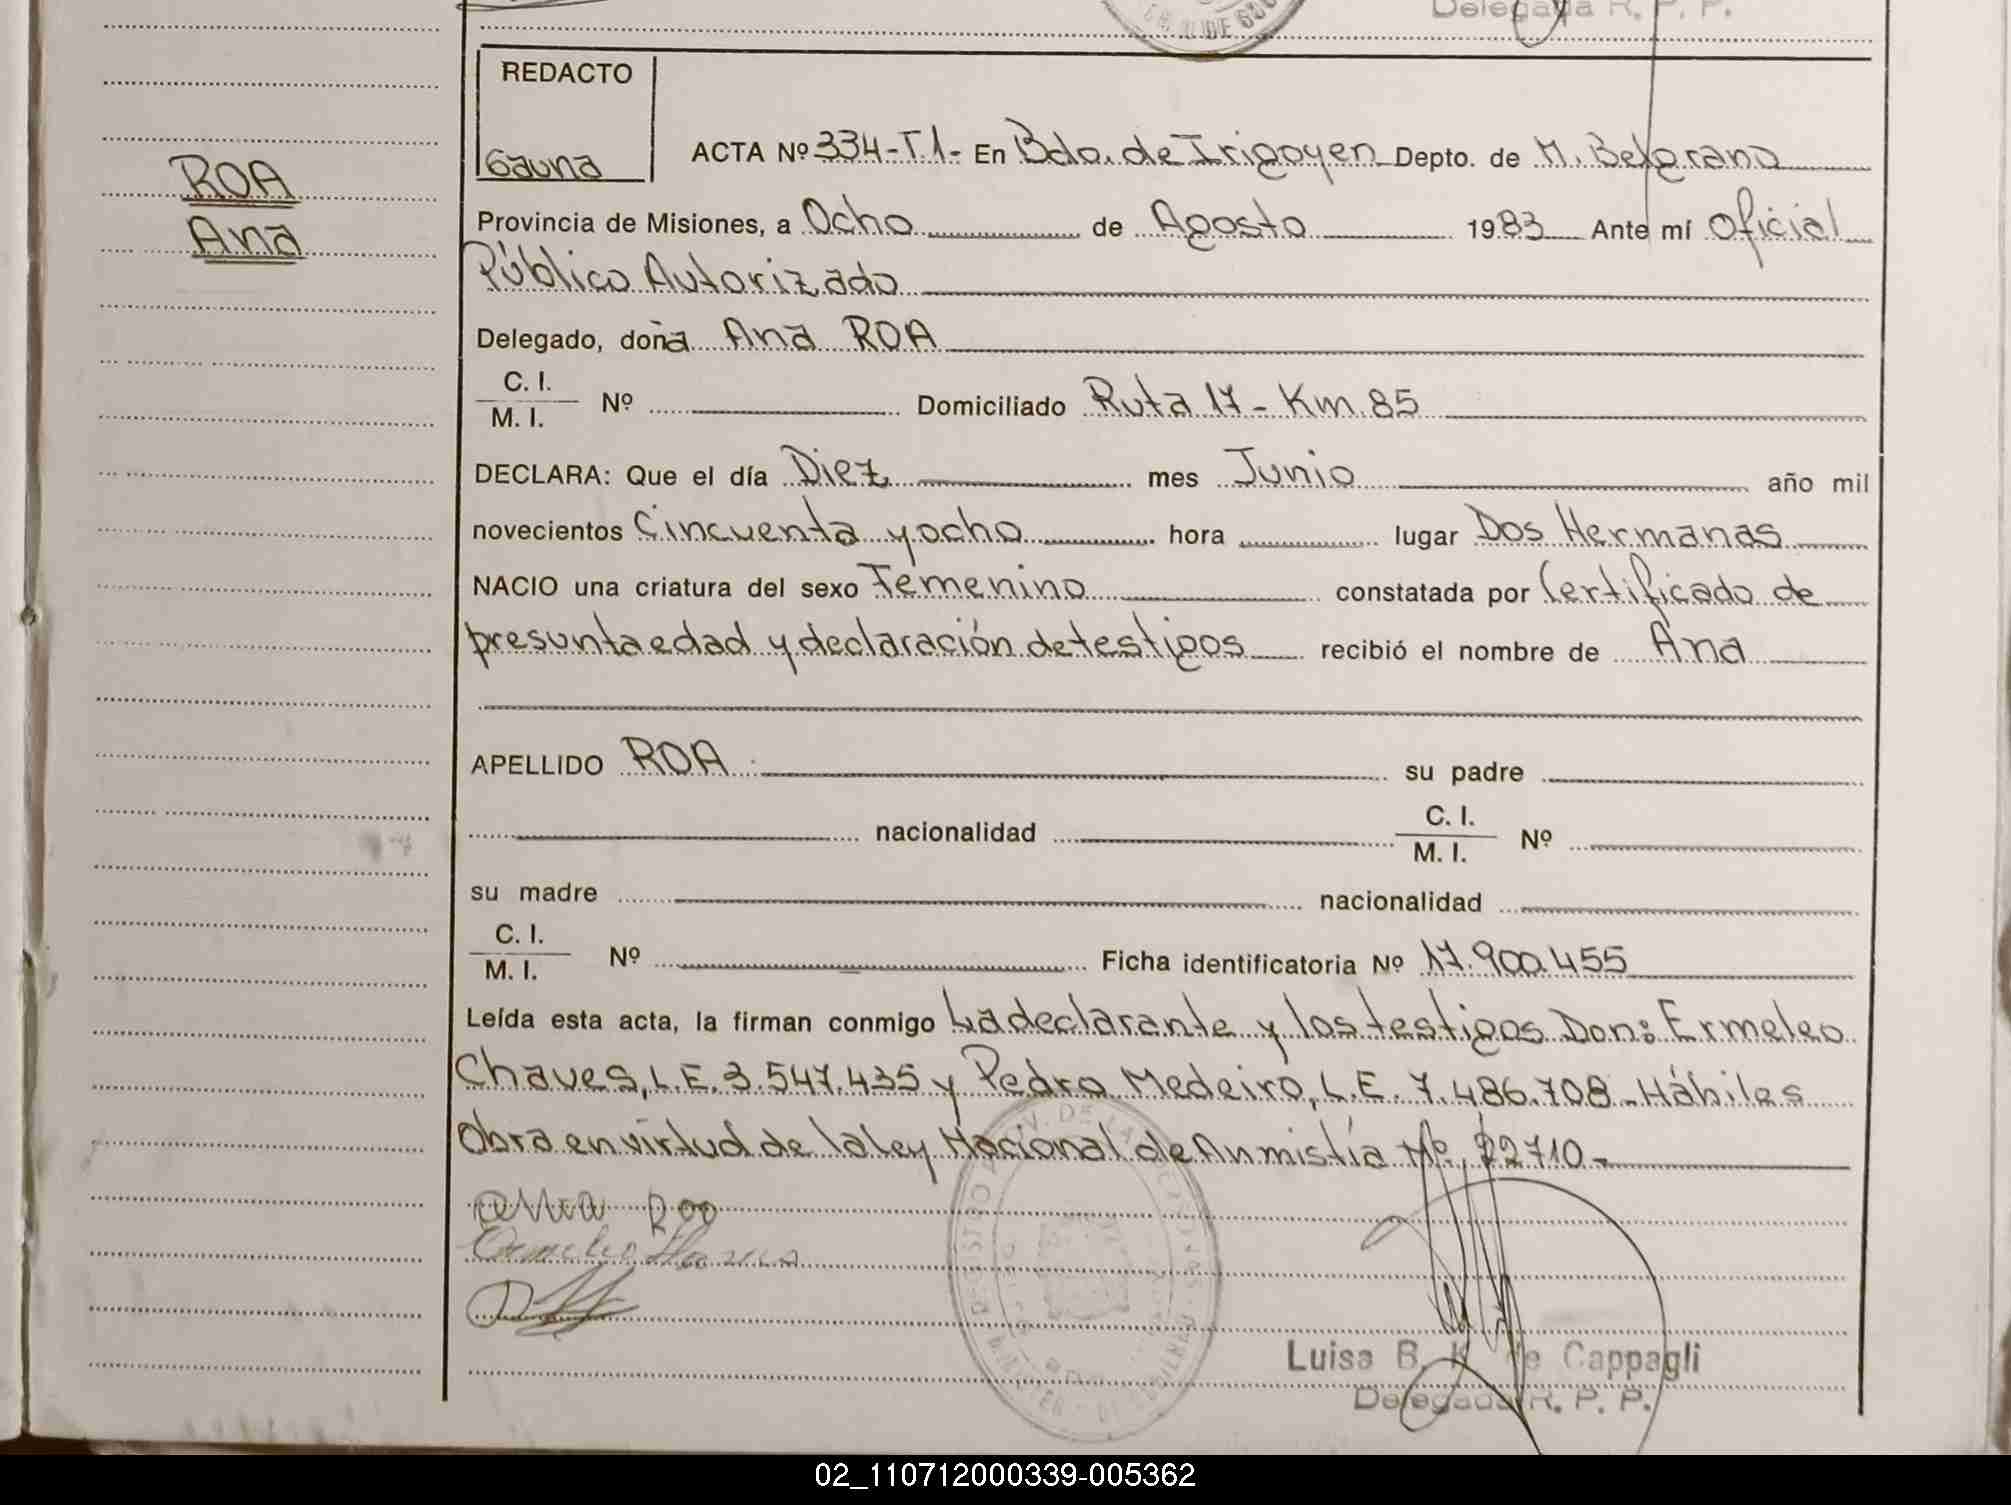 Delegada R. P. P.
REDACTO
Gauna
ROA
Ana
ACTA Nº 334-T.1- En Bdo. de Irigoyen Depto. de M. Belgrano
Provincia de Misiones, a Ocho de Agosto 1983 Ante mí Oficial
Público Autorizado
Delegado, doña Ana ROA
C. I.
M. I. Nº Domiciliado Ruta 17 - Km. 85
DECLARA: Que el día Diez mes Junio año mil
novecientos Cincuenta y ocho hora lugar Dos Hermanas
NACIO una criatura del sexo Femenino constatada por Certificado de
presunta edad y declaración de testigos recibió el nombre de Ana
APELLIDO ROA su padre
nacionalidad C. I.
M. I. Nº
su madre nacionalidad
C. I.
M. I. Nº Ficha identificatoria Nº 17.900.455
Leída esta acta, la firman conmigo La declarante y los testigos Don: Ermeleo
Chaves, L.E. 3.547.435 y Pedro Medeiro, L.E. 7.486.708 - Hábiles
Obra en virtud de la ley Nacional de Anmistía Nº. 22710 -
Ana Roa
Luisa B. K. de Cappagli
Delegada R. P. P.
02_110712000339-005362